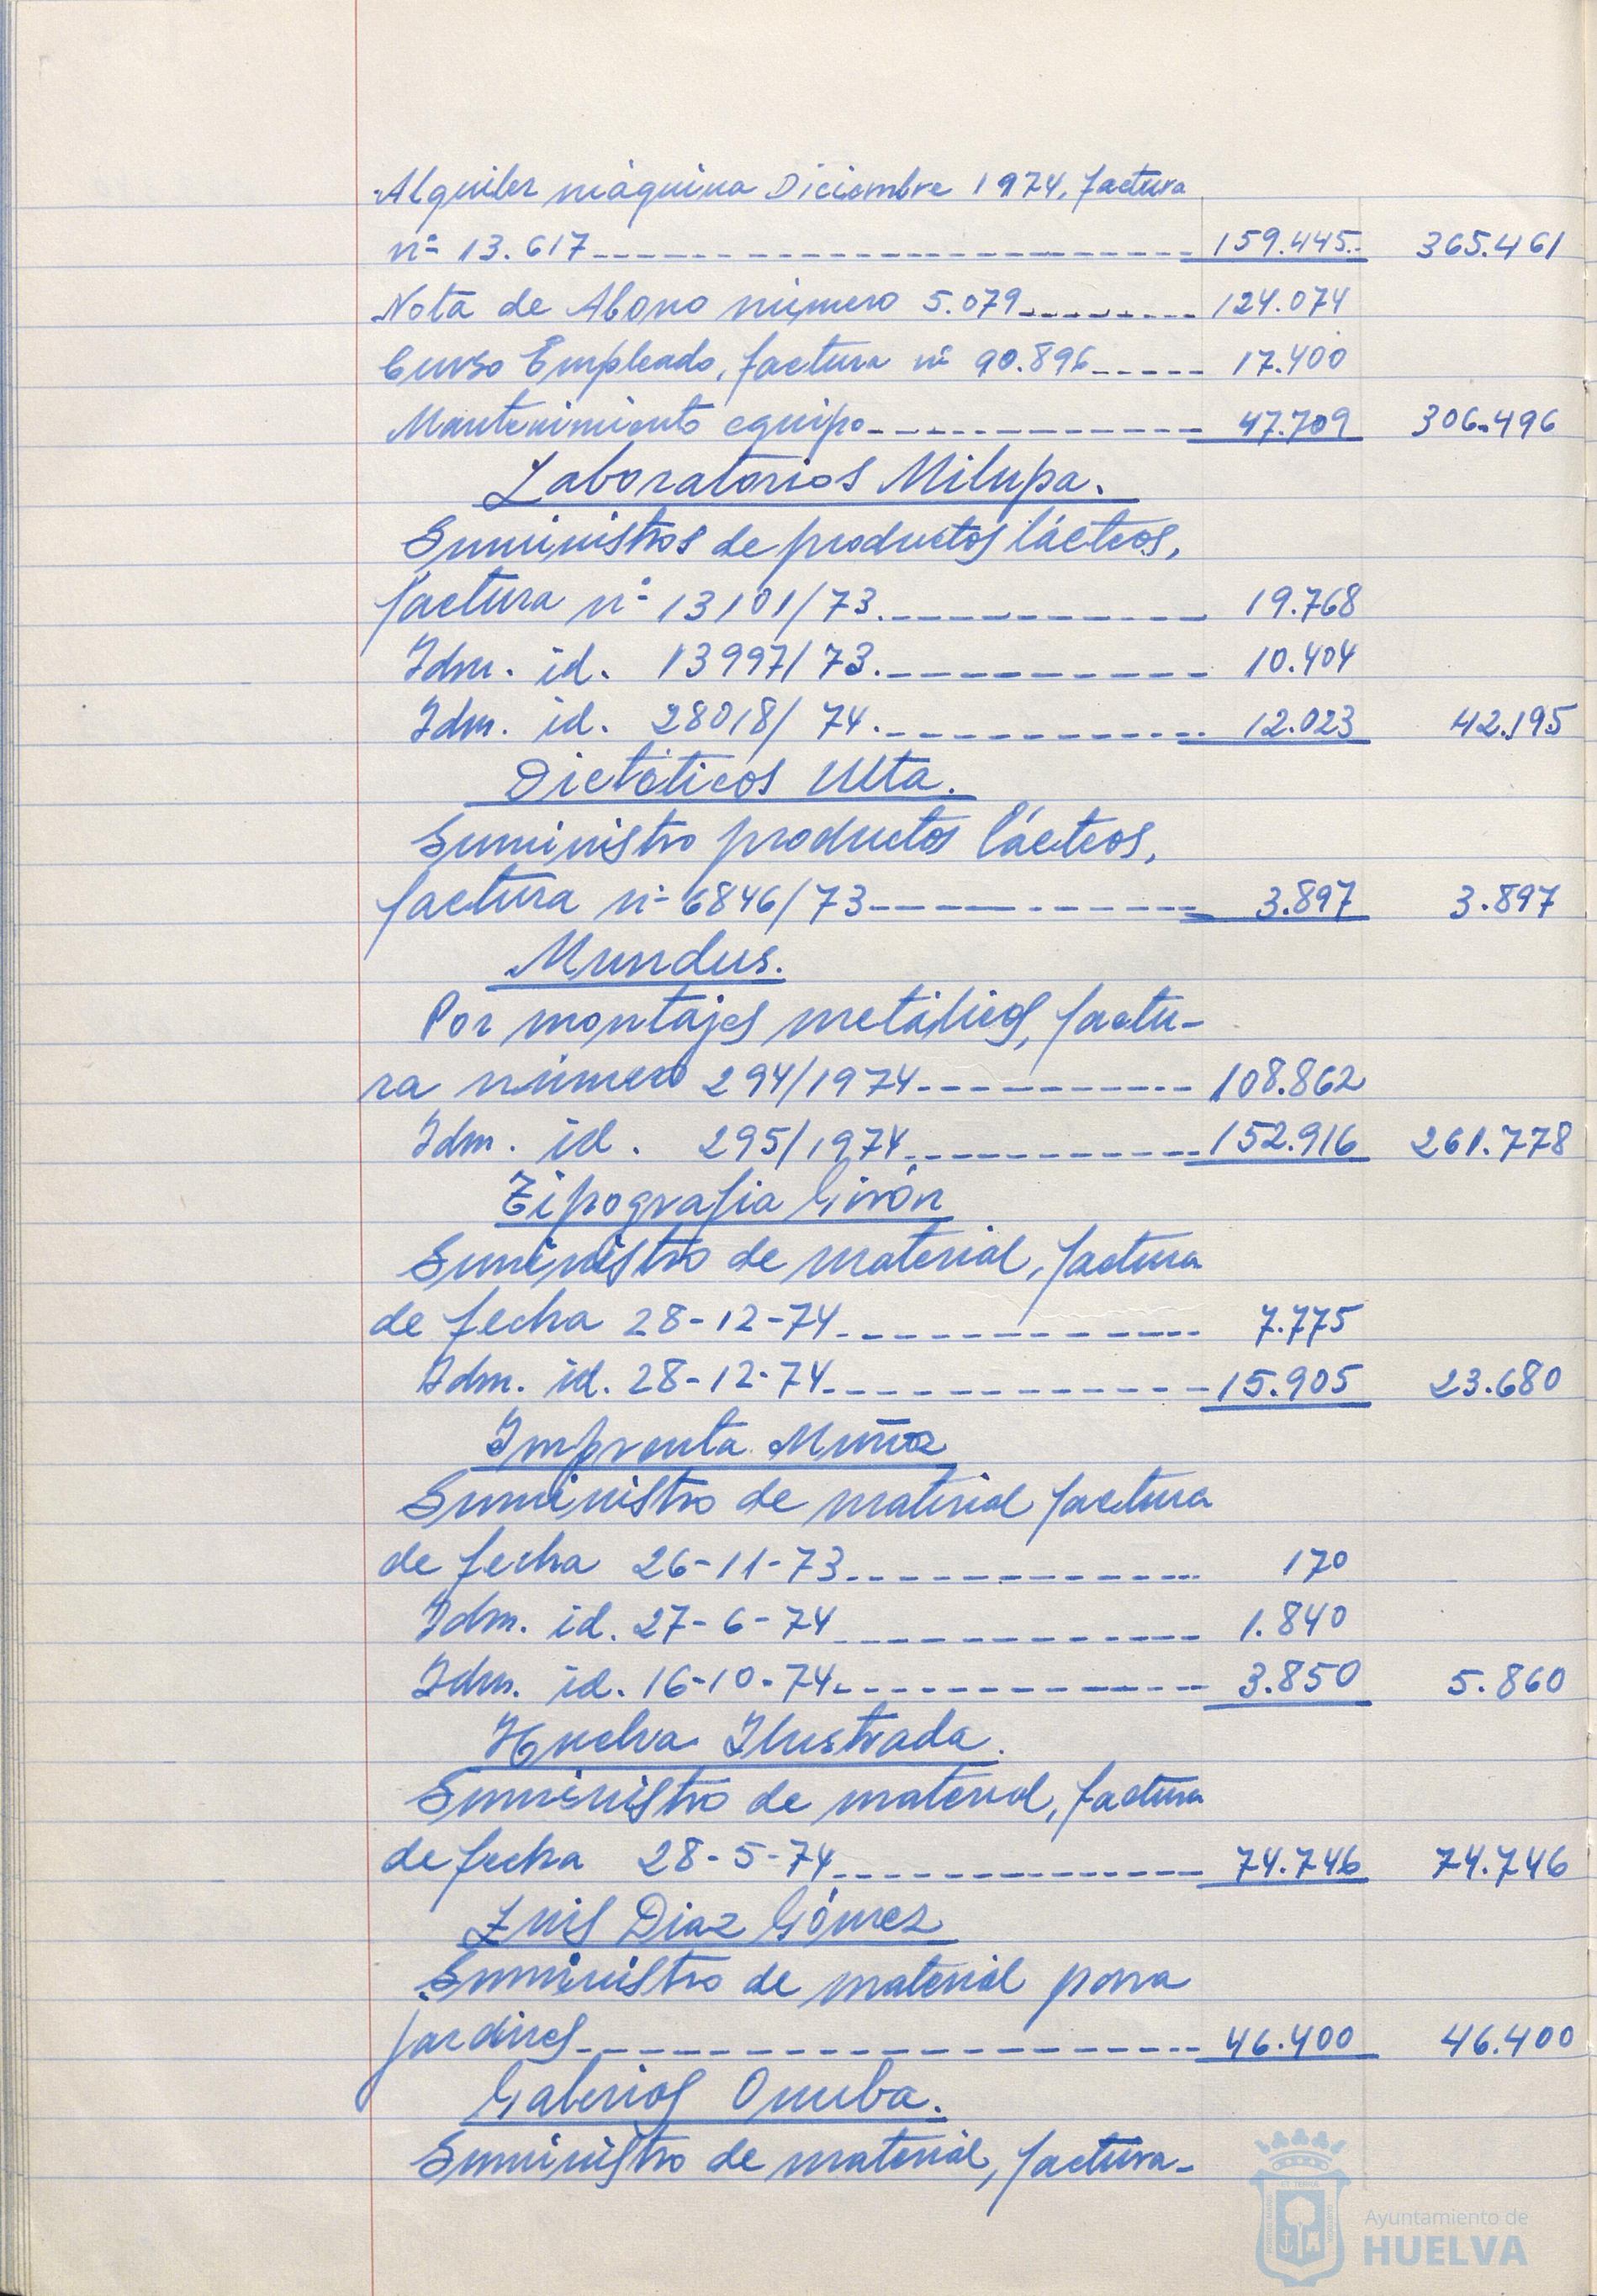 Alquiler máquina Diciembre 1974, factura
nº 13.617 159.445.- 365.461
Nota de Abono número 5.079 124.074
Curso Empleado, factura nº 90.896 17.400
Mantenimiento equipo 47.709 306.496
Laboratorios Milupa.
Suministros de productos lácteos,
factura nº 13101/73. 19.768
Idm. id. 13997/73. 10.404
Idm. id. 28018/74. 12.023 42.195
Dietéticos Ulta.
Suministro productos lácteos,
factura nº 6846/73 3.897 3.897
Mundus.
Por montajes metálicos, factu-
ra número 294/1974 108.862
Idm. id. 295/1974 152.916 261.778
Tipografia Girón
Suministro de material, factura
de fecha 28-12-74 7.775
Idm. id. 28-12-74 15.905 23.680
Imprenta Muñoz
Suministro de material factura
de fecha 26-11-73 170
Idm. id. 27-6-74 1.840
Idm. id. 16-10-74 3.850 5.860
Huelva Ilustrada.
Suministro de material, factura
de fecha 28-5-74 74.746 74.746
Luis Diaz Gómez
Suministro de material para
jardines 46.400 46.400
Galerias Onuba.
Suministro de material, factura-
Ayuntamiento de
HUELVA